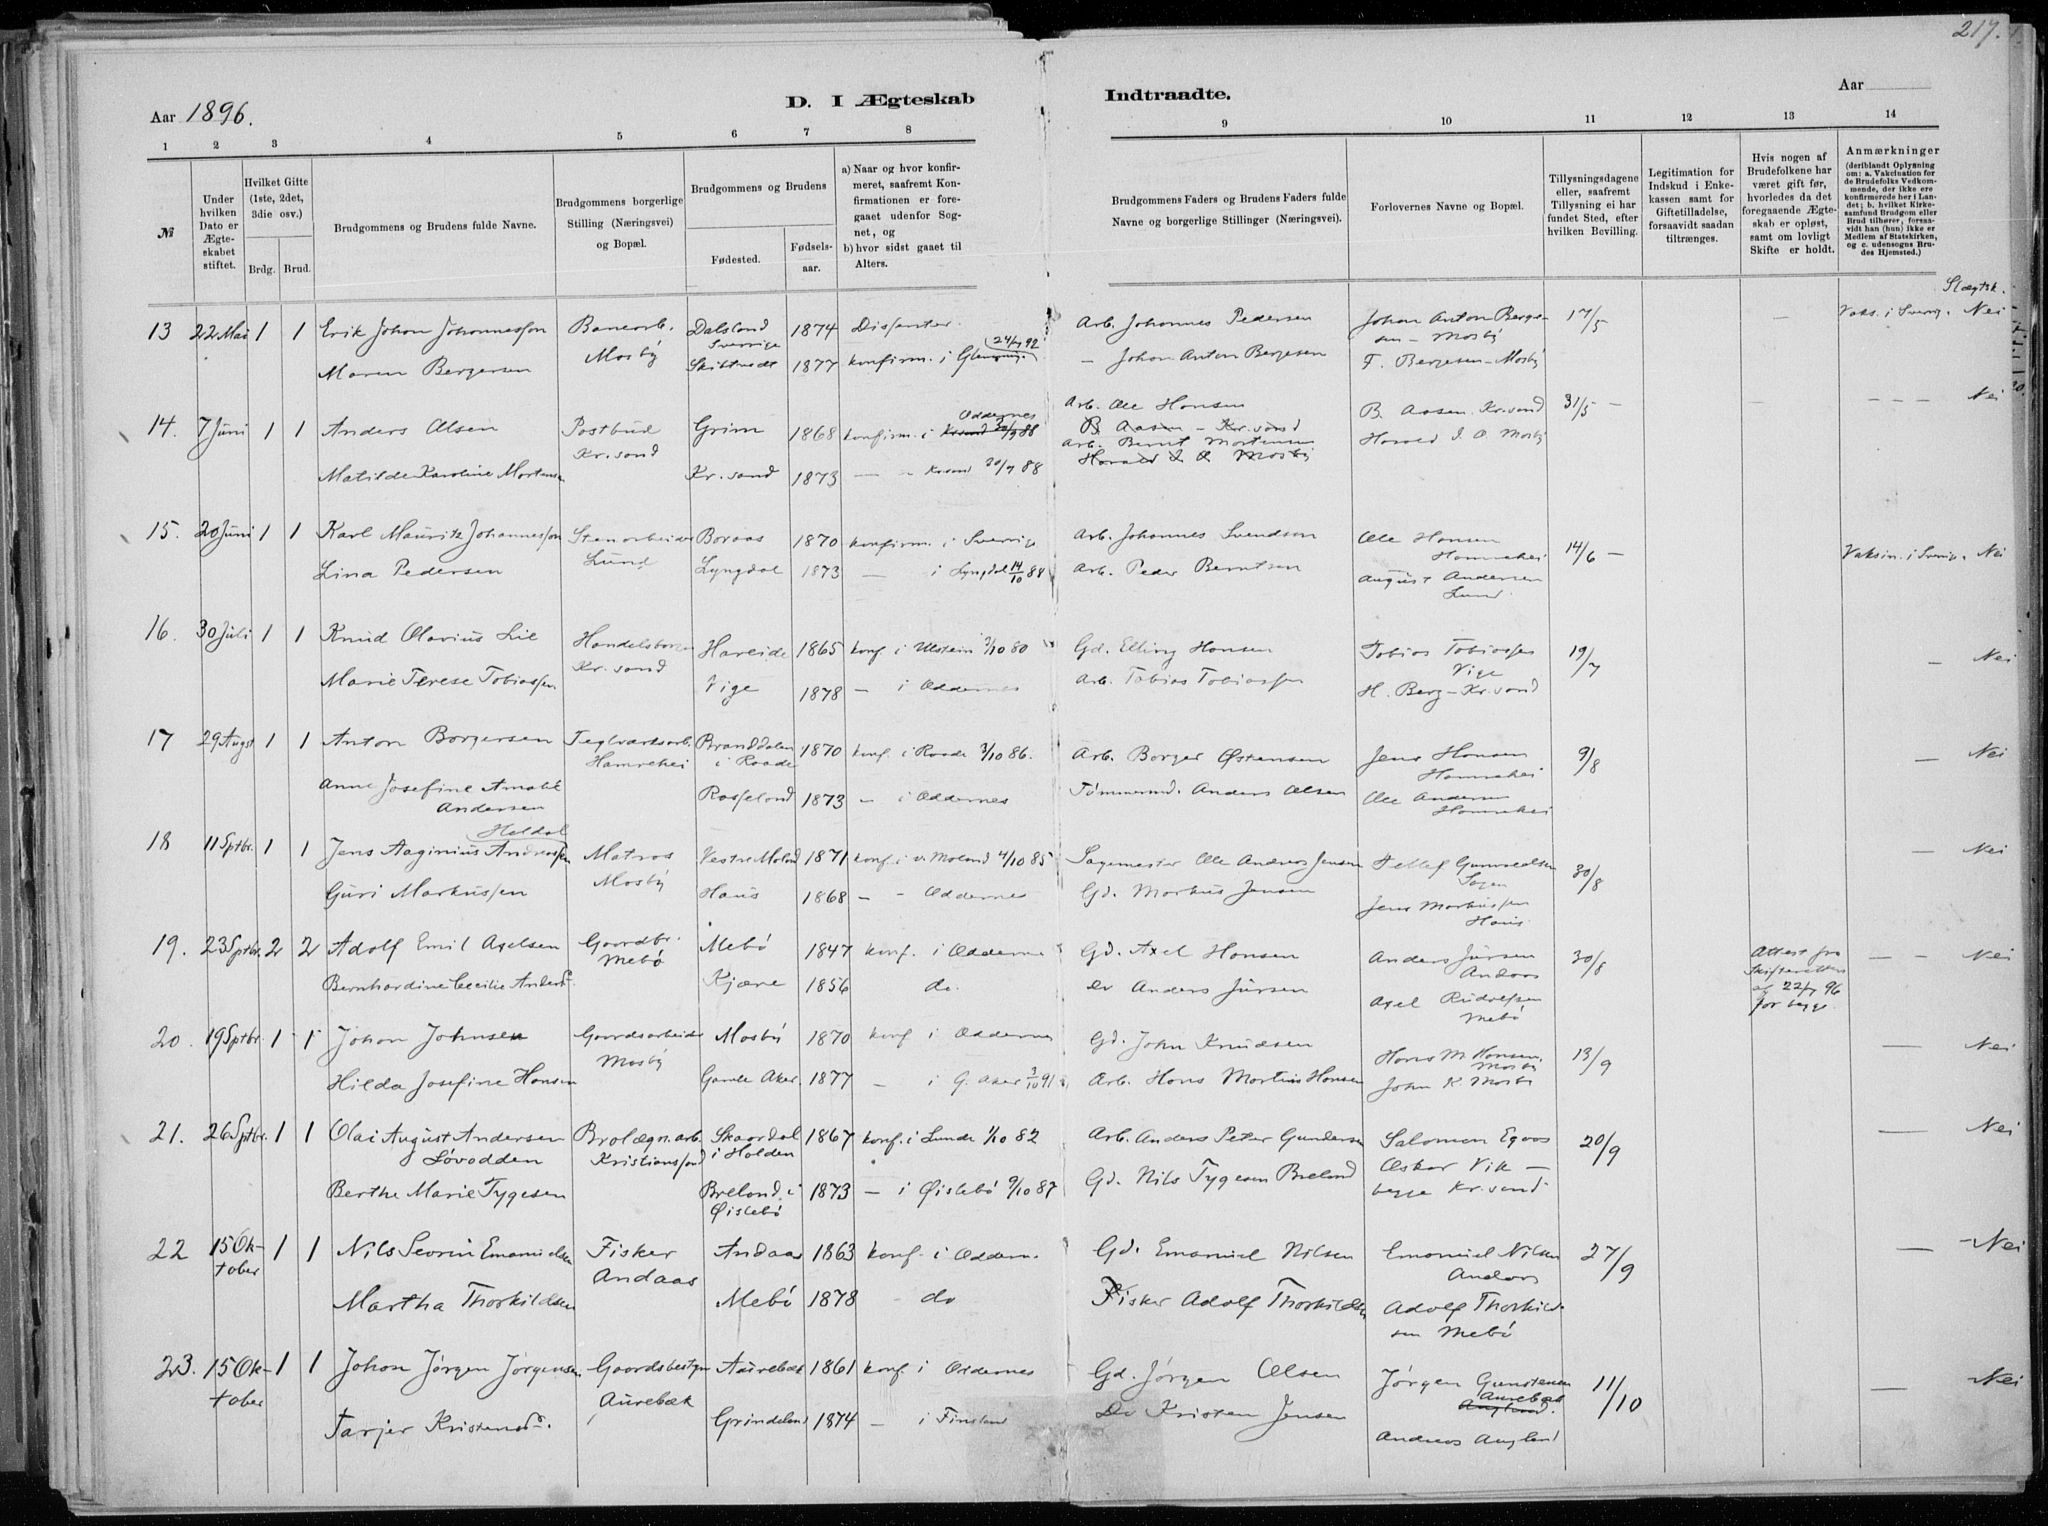 217.
Aar 1896.
D. I Ægteskab
Indtraadte.
Aar
1 2 3 4 5 6 7 8 9 10 11 12 13 14
№
Under hvilken Dato er Ægteskabet stiftet.
Hvilket Gifte (1ste, 2det, 3die osv.)
Brdg. Brud.
Brudgommens og Brudens fulde Navne.
Brudgommens borgerlige Stilling (Næringsvei) og Bopæl.
Brudgommens og Brudens
Fødested.
Fødselsaar.
a) Naar og hvor konfirmeret, saafremt Konfirmationen er foregaaet udenfor Sognet, og
b) hvor sidst gaaet til Alters.
Brudgommens Faders og Brudens Faders fulde Navne og borgerlige Stillinger (Næringsvei).
Forlovernes Navne og Bopæl.
Tillysningsdagene eller, saafremt Tillysning ei har fundet Sted, efter hvilken Bevilling.
Legitimation for Indskud i Enkekassen samt for Giftetilladelse, forsaavidt saadan tiltrænges.
Hvis nogen af Brudefolkene har været gift før, hvorledes da det foregaaende Ægteskab er opløst, samt om lovligt Skifte er holdt.
Anmærkninger (deriblandt Oplysning om: a. Vakcination for de Brudefolks Vedkommende, der ikke ere konfirmerede her i Landet; b. hvilket Kirkesamfund Brudgom eller Brud tilhører, forsaavidt han (hun) ikke er Medlem af Statskirken, og c. udensogns Brudes Hjemsted.)
Slægtsk.
13 22 Mai 1 1 Erik Johan Johannesson Banearb. Dalsland Sverrige 1874 Dissenter. Arb. Johannes Pedersen Johan Anton Bergesen - Mosby 17/5 — Vaks. i Sverig. Nei
Maren Bergersen Mosby Skibtvedt 1877 konfirm. i 24/9 92 - Johan Anton Bergesen F. Bergesen - Mosby
14. 7 Juni 1 1 Anders Olsen Postbud Grim 1868 konfirm. i Oddernes 88 Arb. Ole Hansen B. Aasen Kr.sand 31/5 — — — Nei
B. Aasen - Kr.sand
Matilde Karoline Mortensen Kr.sand Kr.sand 1873 — Krsand 88 Arb. Bernt Mortensen Harald I. O. Mosby
Harald I O Mosby
15. 20 Juni 1 1 Karl Mauritz Johannesson Stenarbeider Boraas 1870 konfirm. i Sverrige Arb. Johannes Svendson Ole Hansen Hamrehei 14/6 — Vaksin. i Sverig. Nei
Lina Pedersen Lund Lyngdal 1873 — i Lyngdal 14/10 88 Arb. Peder Berntsen August Andersen Lund
16. 30 Juli 1 1 Knud Olavius Lie Hareide 1865 konf. i Ulstein 3/10 80 Gd. Elling Hansen Tobias Tobiassen Vige 19/7 — Nei
Marie Terese Tobiassen Kr.sand Vige 1878 — i Oddernes Arb. Tobias Tobiassen H. Berg - Kr.sand
17 29 Augst 1 1 Anton Borgersen Teglværksarb. Branddalen i Raade 1870 konf. i Raade 3/10 86. Arb. Borger Østensen Jens Hansen Hamrehei 9/8 — Nei
Anne Josefine Amalie Andersen Hamrehei Rosseland 1873 — i Oddernes Tømmermd. Anders Olsen Ole Andersen Hamrehei
18 11 Sptbr. 1 1 Jens Aaginius Andreassen Heldal Matros Vestre Moland 1871 konf. i V. Moland 4/10 85 Sagemester Ole Andreas Jensen Detlef Gunvaldsen Sagen 30/8 — Nei
Guri Markussen Mosby Haus 1868 — - Oddernes Gd. Markus Jensen Jens Markussen Haus
19. 23 Sptbr. 2 2 Adolf Emil Axelsen Gaardbr. Mebø 1847 konf. i Oddernes Gd. Axel Hansen Anders Jürsen Andaas 30/8 Attest fra Skifteretten af 22/9 96 for begge — — Nei
Bernhardine Cecilie Andersd. Mebø Kjære 1856 do. do Anders Jürsen Axel Rudolfsen Mebø
20. 19 Sptbr. 1 1 Johan Johnsen Gaardsarbeider Mosby 1870 konf i Oddernes Gd. John Knudsen Hans M Hansen, Mosby 13/9 — Nei
Hilda Josefine Hansen Mosby Gamle Aker 1877 — i G. Aker 3/10 91 Arb. Hans Martius Hansen John K Mosby
21. 26 Sptbr. 1 1 Olai August Andersen Løvodden Brolægn.arb. Skaardal i Holden 1867 konf. i Lunde 1/10 82 Arb. Anders Peter Gundersen Salomon Egaas 20/9 — Nei
Berthe Marie Tygesen Kristianssand Breland i Øislebø 1873 — i Øislebø 9/10 87 Gd. Nils Tygesen Breland Oskar Vik — begge Kr.sand
22 15 Oktober 1 1 Nils Severin Emanuelsen Fisker Andaas 1863 konf. i Oddern. Gd. Emanuel Nilsen Emanuel Nilsen Andaas 27/9 — Nei
Martha Thorkildsen Andaas Mebø 1878 - do Fisker Adolf Thorkildsen Adolf Thorkildsen Mebø
23. 15 Oktober 1 1 Johan Jørgen Jørgensen Gaardsbestyr Aurebæk 1861 konf. i Oddernes Gd. Jørgen Olsen Jørgen Gunstensen Aurebæk 11/10 — Nei
Tarjer Kristensd. Aurebæk Grindeland 1874 — i Finsland Do Kristen Jensen Andreas Augland